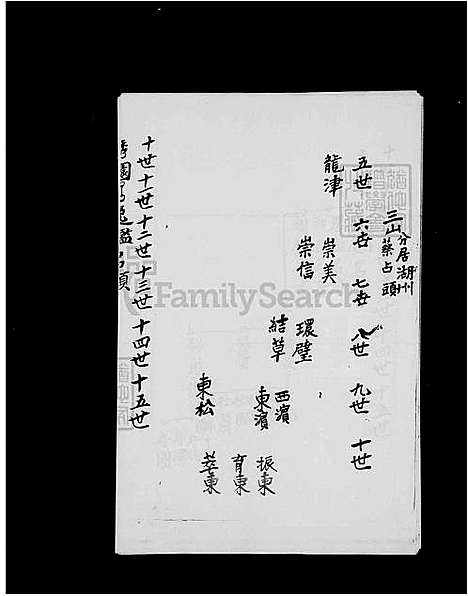 分居湖州
三山蔡占頭
五世 六世 七世 八世 九世 十世
龍津 崇美
崇信 環璧
結草 西濱
東濱 振東
育東
東松 萃東
十世十一世十二世十三世十四世十五世
FamilySearch